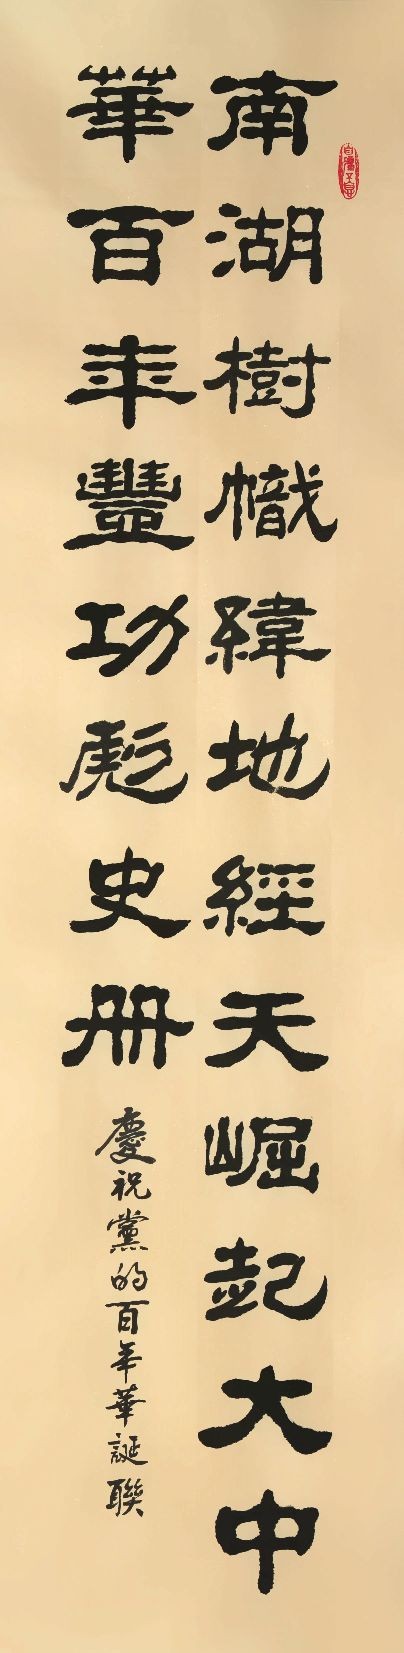 南湖樹幟緯地經天崛起大中
華百年豐功彪史册
慶祝黨的百年華誕聯